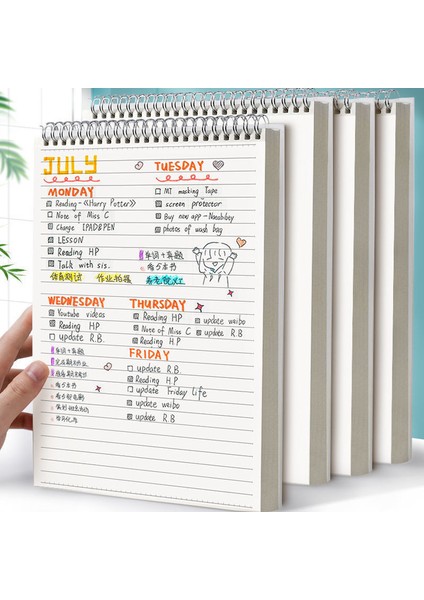 JULY
TUESDAY
MONDAY
MT masking Tape
Reading-《Harry Potter》
screen protector
Note of Miss C
Buy new app-
Change IPAD&PEN
photos of wash bag
LESSON
Reading HP
单词+真题
Talk with sis.
看5本书
作业拍摄
WEDNESDAY
THURSDAY
Youtube videos
Reading HP
update weibo
Reading HP
Note of Miss C
update R.B
update R.B.
Reading HP
FRIDAY
单词+真题
update R.B
Reading HP
看5本书
update Friday life
update weibo
update R.B